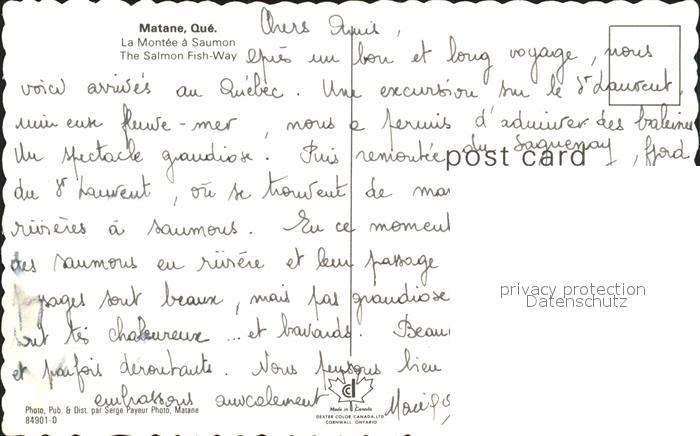 Matane, Qué.
La Montée à Saumon
The Salmon Fish-Way
Chers Amis,
après un bon et long voyage, nous
voici arrivés au Québec. Une excursion sur le St Laurent,
fleuve-mer, nous a permis d'admirer des baleines
Un spectacle grandiose. Puis remontée du Saguenay, fjord
post card
du St Laurent, où se trouvent de
rivières à saumons. En ce moment
des saumons en rivière et leur passage
sont beaux, mais pas grandiose
sont très chaleureux ... et bavards. Beau
et parfois déroutante. Nous pensons bien
embrassons amicalement
privacy protection
Datenschutz
Photo, Pub. & Dist. par Serge Payeur Photo, Matane
84901-D
Made in Canada
DEXTER COLOR CANADA, LTD
CORNWALL, ONTARIO